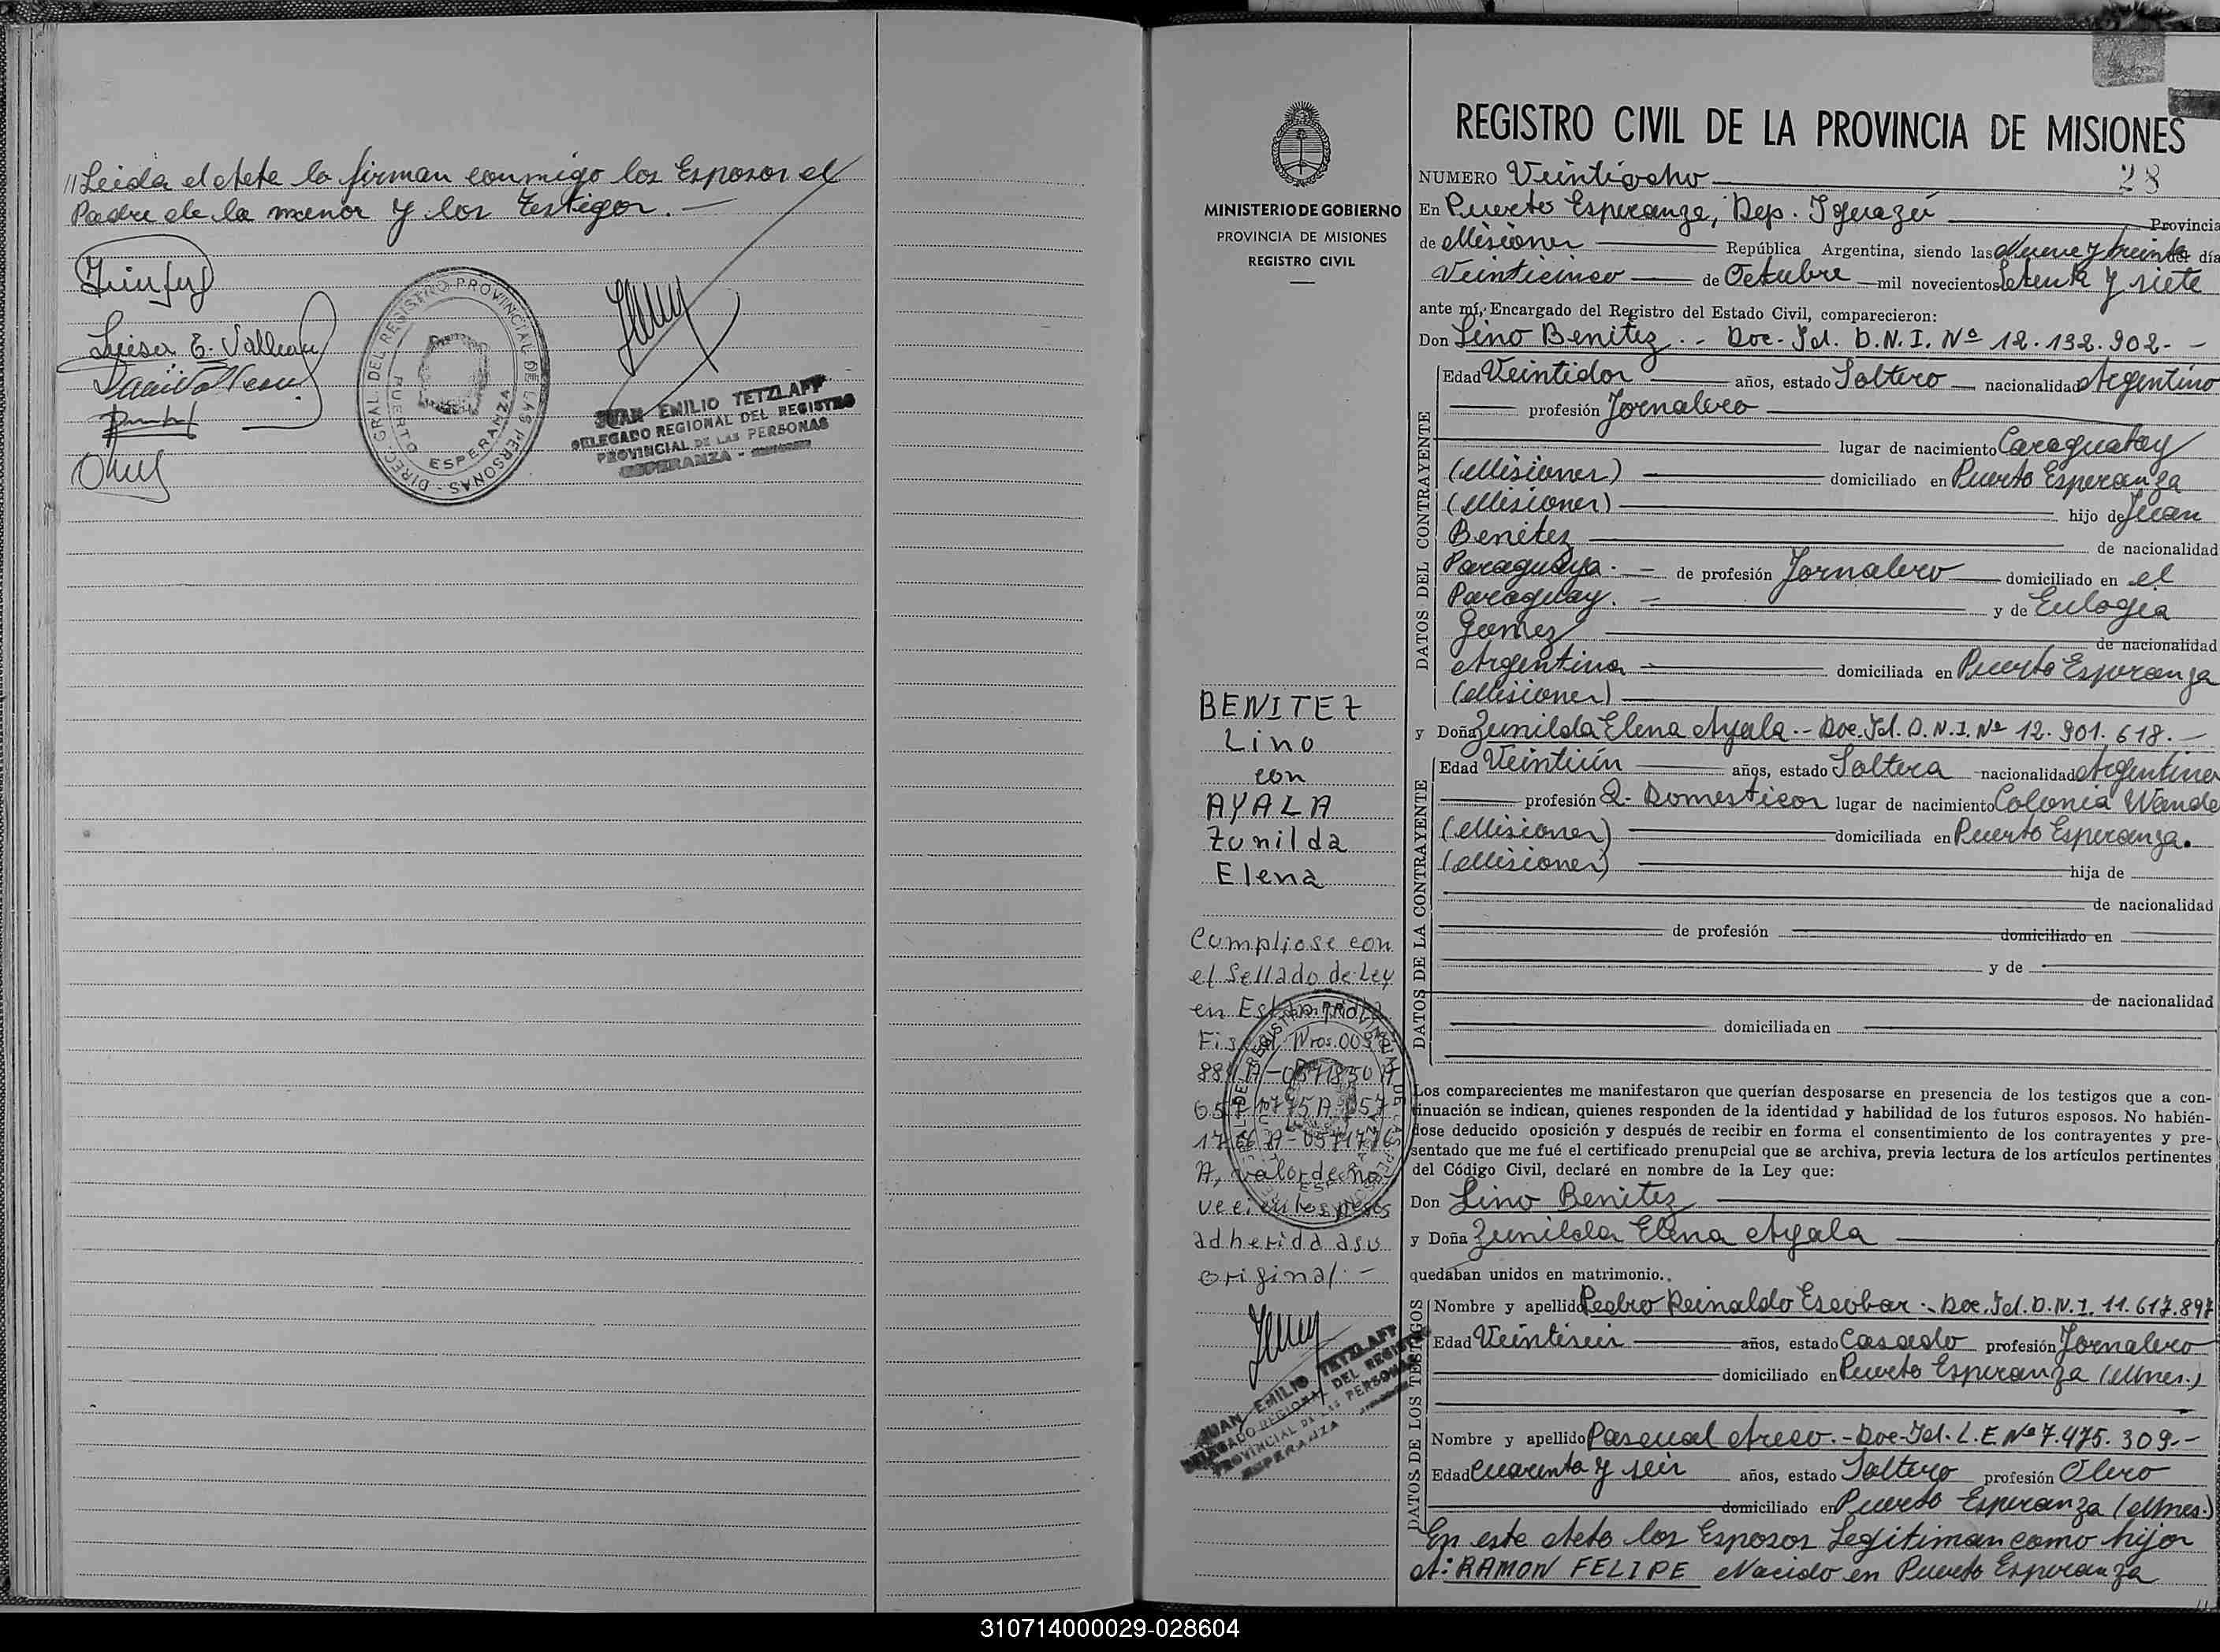 // Leida el Acta la firman conmigo los Esposos el
Padre de la menor y los Testigos. —
Luisa E. Valleau
DIREC. GRAL. DEL REGISTRO PROVINCIAL DE LAS PERSONAS -
PUERTO ESPERANZA
JUAN EMILIO TETZLAFF
DELEGADO REGIONAL DEL REGISTRO
PROVINCIAL DE LAS PERSONAS
ESPERANZA -
MINISTERIO DE GOBIERNO
PROVINCIA DE MISIONES
REGISTRO CIVIL
BENITEZ
Lino
con
AYALA
Zunilda
Elena
Cumpliose con
el Sellado de Ley
en Estampilla
A, valor de no-
vecientos pesos
adherida a su
original. —
JUAN EMILIO TETZLAFF
DELEGADO REGIONAL DEL REGISTRO
PROVINCIAL DE LAS PERSONAS
ESPERANZA
REGISTRO CIVIL DE LA PROVINCIA DE MISIONES
NUMERO Veintiocho 28
En Puerto Esperanza, Dep. Iguazú Provincia
de Misiones República Argentina, siendo las Nueve y treinta del día
Veinticinco de Octubre mil novecientos Setenta y siete
ante mí, Encargado del Registro del Estado Civil, comparecieron:
Don Lino Benitez. - Doc. Id. D.N.I. Nº 12.132.902. -
DATOS DEL CONTRAYENTE
Edad Veintidos años, estado Soltero nacionalidad Argentino
profesión Jornalero
lugar de nacimiento Caraguatay
(Misiones) domiciliado en Puerto Esperanza
(Misiones) hijo de Juan
Benitez de nacionalidad
Paraguaya. - de profesión Jornalero domiciliado en el
Paraguay. - y de Eulogia
Gomez de nacionalidad
Argentina domiciliada en Puerto Esperanza
(Misiones)
y Doña Zunilda Elena Ayala. - Doc. Id. D.N.I. Nº 12.901.618. -
DATOS DE LA CONTRAYENTE
Edad Veintiún años, estado Soltera nacionalidad Argentina
profesión Q. Domesticos lugar de nacimiento Colonia Wanda
(Misiones) domiciliada en Puerto Esperanza.
(Misiones) hija de
de nacionalidad
de profesión domiciliado en
y de
de nacionalidad
domiciliada en
Los comparecientes me manifestaron que querían desposarse en presencia de los testigos que a con-
tinuación se indican, quienes responden de la identidad y habilidad de los futuros esposos. No habién-
dose deducido oposición y después de recibir en forma el consentimiento de los contrayentes y pre-
sentado que me fué el certificado prenupcial que se archiva, previa lectura de los artículos pertinentes
del Código Civil, declaré en nombre de la Ley que:
Don Lino Benitez
y Doña Zunilda Elena Ayala
quedaban unidos en matrimonio.
DATOS DE LOS TESTIGOS
Nombre y apellido Pedro Reinaldo Escobar. - Doc. Id. D.N.I. 11.617.897
Edad Veintiseis años, estado Casado profesión Jornalero
domiciliado en Puerto Esperanza (Mnes.)
Nombre y apellido Pascual Areco. - Doc. Id. L.E. Nº 7.475.309. -
Edad Cuarenta y seis años, estado Soltero profesión Olero
domiciliado en Puerto Esperanza (Mnes.)
En este Acto los Esposos Legitiman como hijos
A: RAMON FELIPE Nacido en Puerto Esperanza
//
310714000029-028604